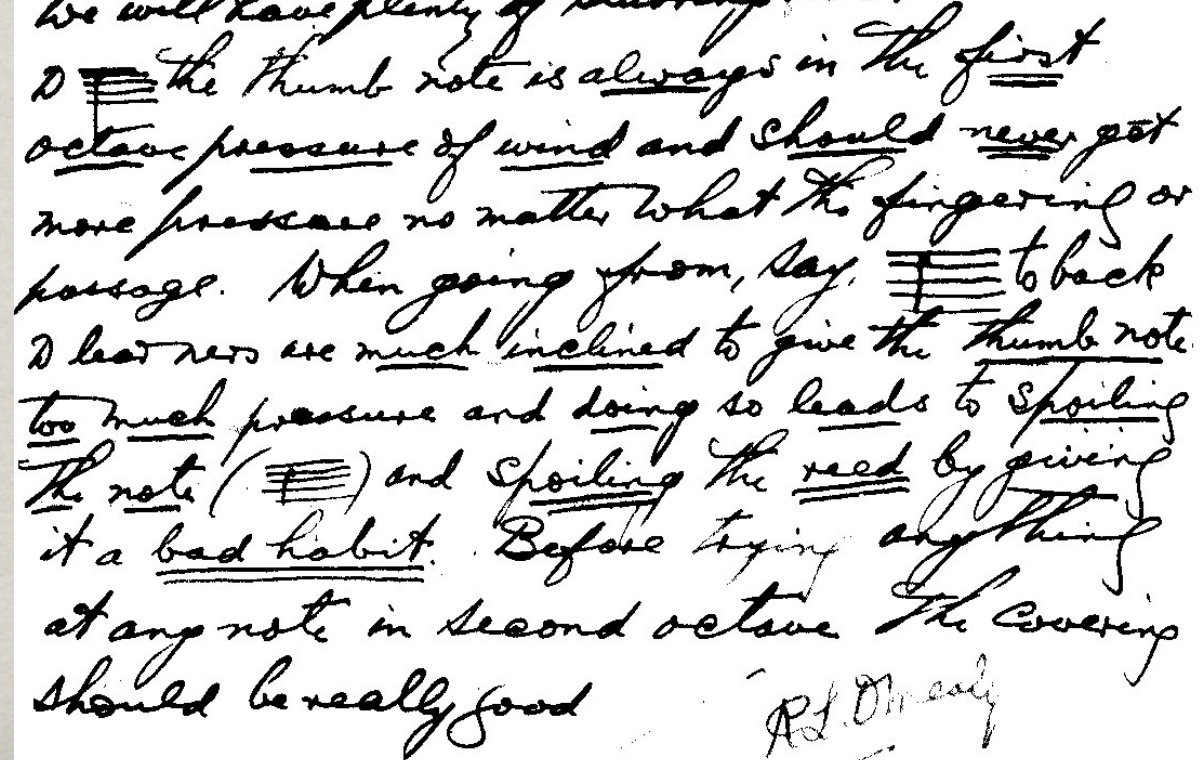 we will have plenty of
D the thumb note is always in the first
octave pressure of wind and should never get
more pressure no matter what the fingering or
passage. When going from, say, to back
D learners are much inclined to give the thumb note
too much pressure and doing so leads to spoiling
the note ( ) and spoiling the reed by giving
it a bad habit. Before trying anything
at any note in second octave the covering
should be really good
R.L. O'Mealy